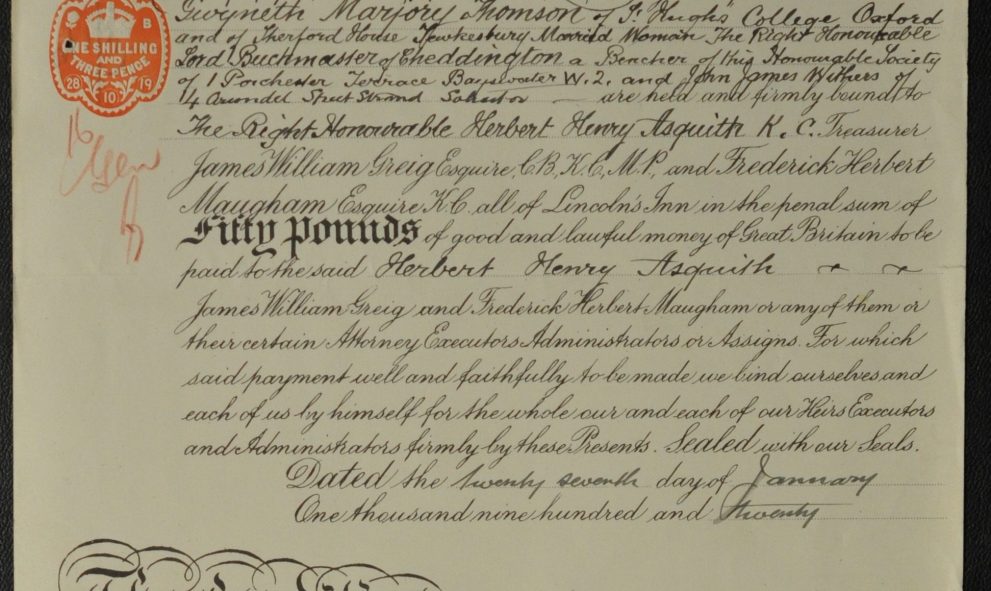 B
ONE SHILLING
AND
THREE PENCE
28 19
10
Gwyneth Marjory Thomson of St. Hugh's College Oxford
and of Therford House Tewkesbury Married Woman The Right Honourable
Lord Buckmaster of Cheddington a Bencher of this Honourable Society
of 1 Porchester Terrace Bayswater W.2. and John James Withers of
14 Arundel Street Strand Solicitor — are held and firmly bound to
The Right Honourable Herbert Henry Asquith K.C. Treasurer
James William Greig Esquire, C.B, K.C, M.P, and Frederick Herbert
Maugham Esquire K.C. all of Lincoln's Inn in the penal sum of
Fifty Pounds of good and lawful money of Great Britain to be
paid to the said Herbert Henry Asquith ~ ~
James William Greig and Frederick Herbert Maugham or any of them or
their certain Attorney Executors Administrators or Assigns. For which
said payment well and faithfully to be made we bind ourselves and
each of us by himself for the whole our and each of our Heirs Executors
and Administrators firmly by these Presents. Sealed with our Seals.
Dated the twenty seventh day of January
One thousand nine hundred and twenty